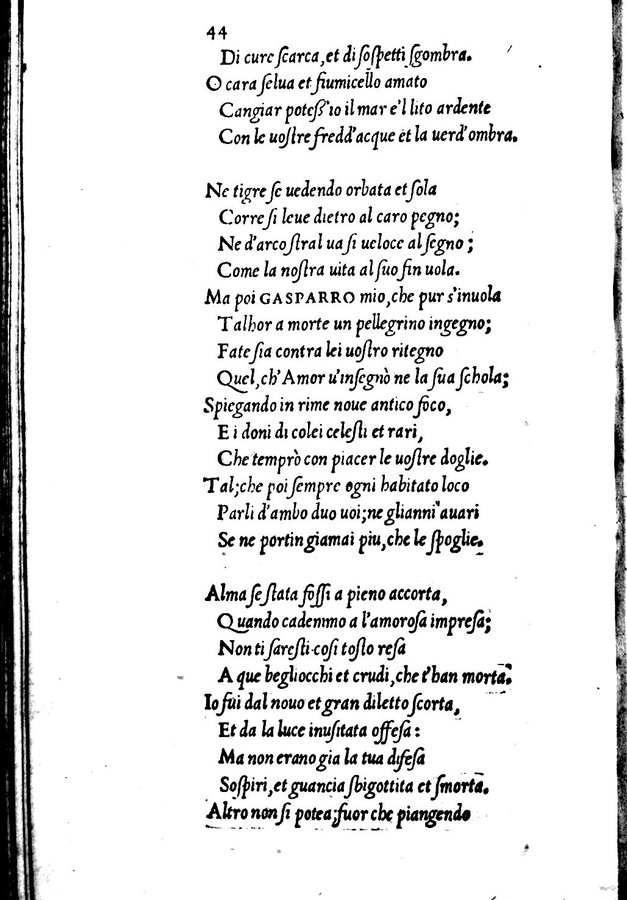 44
Di cure ſcarca, et di ſoſpetti ſgombra.
O cara ſelua et fiumicello amato
Cangiar poteſſ'io il mar e'l lito ardente
Con le uoſtre fredd'acque et la uerd'ombra.

Ne tigre ſe uedendo orbata et ſola
Corre ſi leue dietro al caro pegno;
Ne d'arco ſtral ua ſi ueloce al ſegno;
Come la noſtra uita al ſuo fin uola.
Ma poi GASPARRO mio, che pur s'inuola
Talhor a morte un pellegrino ingegno;
Fate ſia contra lei uoſtro ritegno
Quel, ch'Amor u'inſegnò ne la ſua ſchola;
Spiegando in rime noue antico foco,
E i doni di colei celeſti et rari,
Che temprò con piacer le uoſtre doglie.
Tal; che poi ſempre ogni habitato loco
Parli d'ambo duo uoi; ne glianni auari
Se ne portin giamai piu, che le ſpoglie.

Alma ſe ſtata foſſi a pieno accorta,
Quando cademmo a l'amoroſa impreſa;
Non ti ſareſti coſi toſto reſa
A que begliocchi et crudi, che t'han morta.
Io fui dal nouo et gran diletto ſcorta,
Et da la luce inuſitata offeſa:
Ma non erano gia la tua difeſa
Soſpiri, et guancia ſbigottita et ſmorta.
Altro non ſi potea; fuor che piangendo